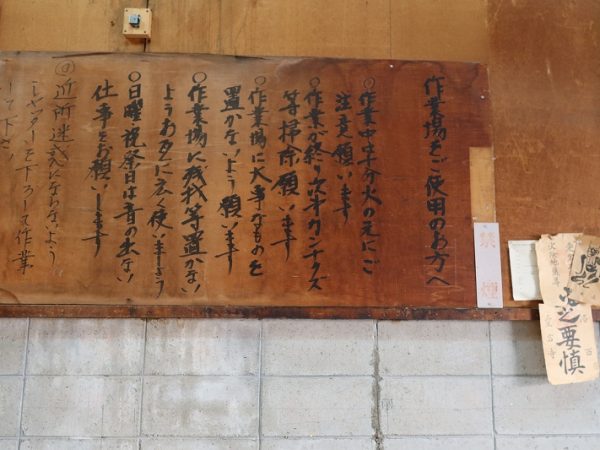 作業場をご使用のお方へ
○作業中は十分火の元にご
注意願います
○作業が終り次オカンナクズ
等掃除願います
○作業場に大事なものを
置かないよう願います
○作業場に残材等置かない
ようお互に広く使いましょう
○日曜・祝祭日は音の出ない
仕事をお願いします
◎近所迷惑にならないよう
シャッターを下ろして作業
して下さい
禁煙
火之要慎